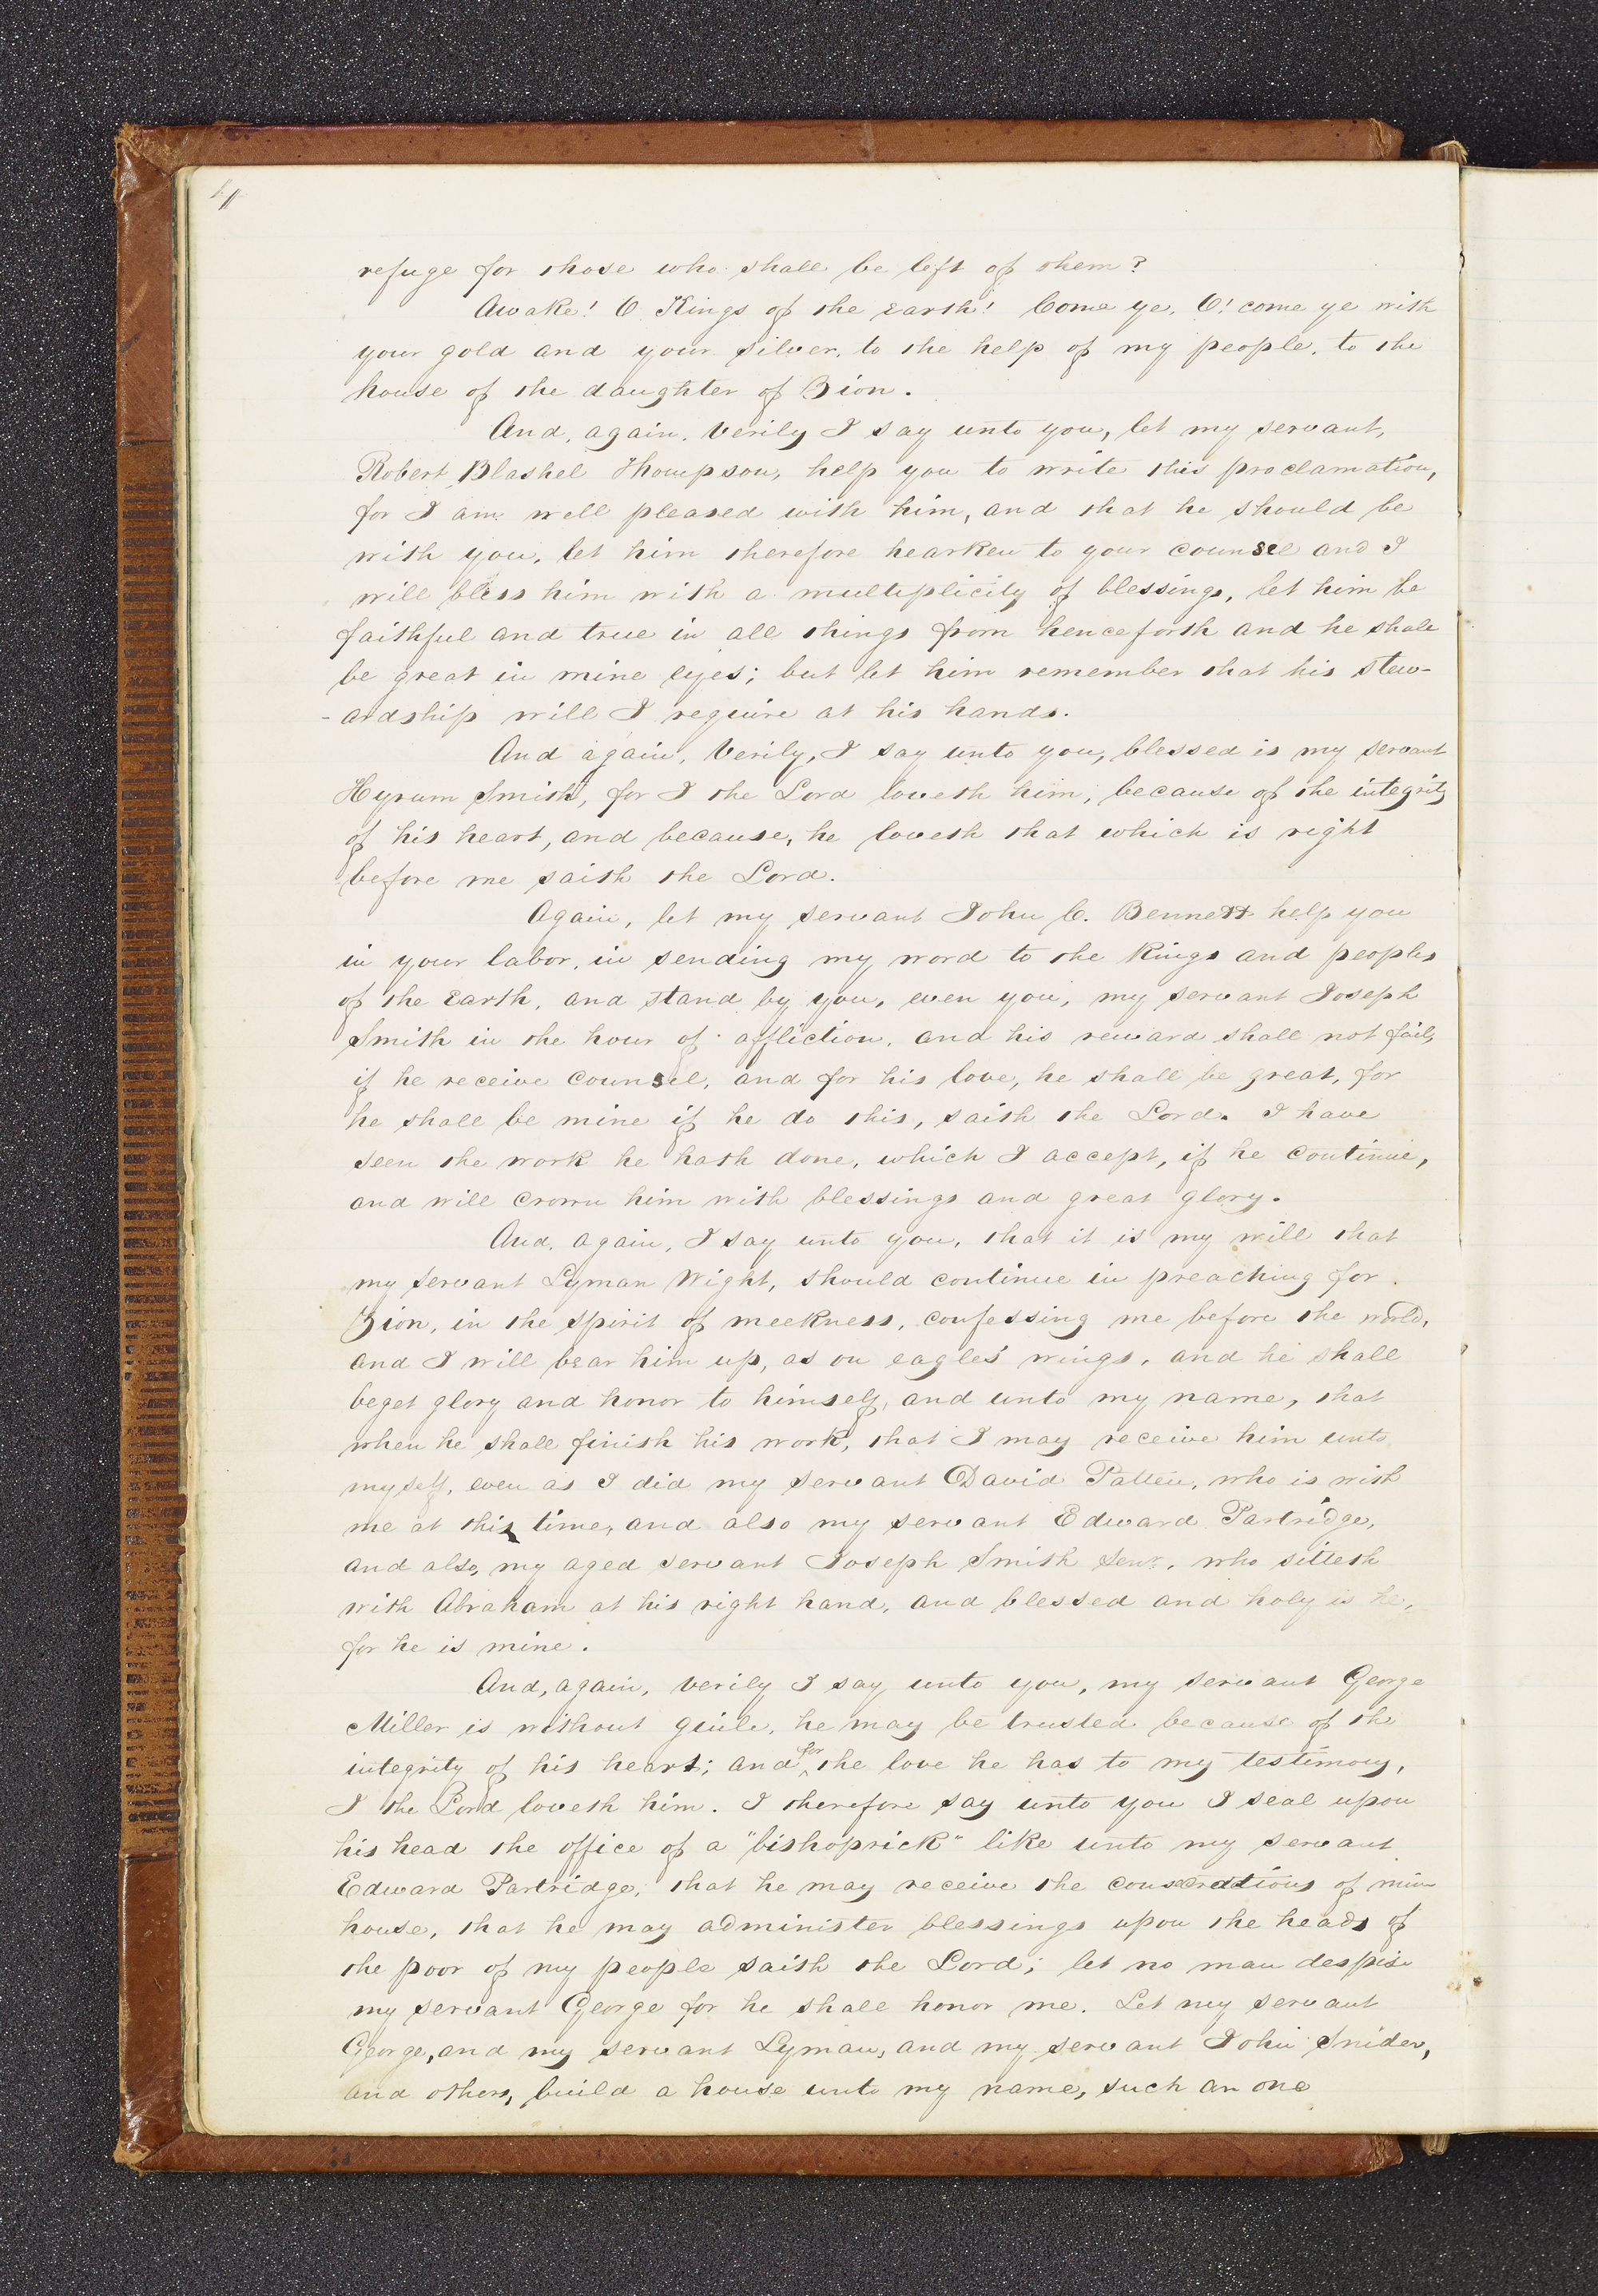 4
refuge for those who shall be left of them?
Awake! O Kings of the Earth! Come ye, O! come ye with
your gold and your silver, to the help of my people, to the
house of the daughter of Zion.
And, again, Verily I say unto you, let my servant,
Robert Blashel Thompson, help you to write this proclamation,
for I am well pleased with him, and that he should be
with you, let him therefore hearken to your counsel and I
will bless him with a multiplicity of blessings, let him be
faithful and true in all things from henceforth and he shall
be great in mine eyes; but let him remember that his stew-
-ardship will I require at his hands.
And again, Verily, I say unto you, blessed is my servant
Hyrum Smith, for I the Lord loveth him, because of the integrity
of his heart, and because, he loveth that which is right
before me saith the Lord.
Again, let my servant John C. Bennett help you
in your labor, in sending my word to the Kings and peoples
of the Earth, and stand by you, even you, my servant Joseph
Smith in the hour of affliction, and his reward shall not fail,
if he receive counsel, and for his love, he shall be great, for
he shall be mine if he do this, saith the Lord. I have
seen the work he hath done, which I accept, if he continue,
and will crown him with blessings and great glory.
And, again, I say unto you, that it is my will that
my servant Lyman Wight, should continue in preaching for
Zion, in the spirit of meekness, confessing me before the world,
and I will bear him up, as on eagles' wings, and he shall
beget glory and honor to himself, and unto my name, that
when he shall finish his work, that I may receive him unto
myself, even as I did my servant David Patten, who is with
me at this time, and also my servant Edward Partridge,
and also, my aged servant Joseph Smith Senr., who sitteth
with Abraham at his right hand, and blessed and holy is he,
for he is mine.
And, again, verily I say unto you, my servant George
Miller is without guile, he may be trusted because of the
integrity of his heart; and for the love he has to my testimony,
I the Lord loveth him. I therefore say unto you I seal upon
his head the office of a "bishoprick" like unto my servant
Edward Partridge, that he may receive the consecrations of mine
house, that he may administer blessings upon the heads of
the poor of my people saith the Lord; let no man despise
my servant George for he shall honor me. Let my servant
George, and my servant Lyman, and my servant John Snider,
and others, build a house unto my name, such an one